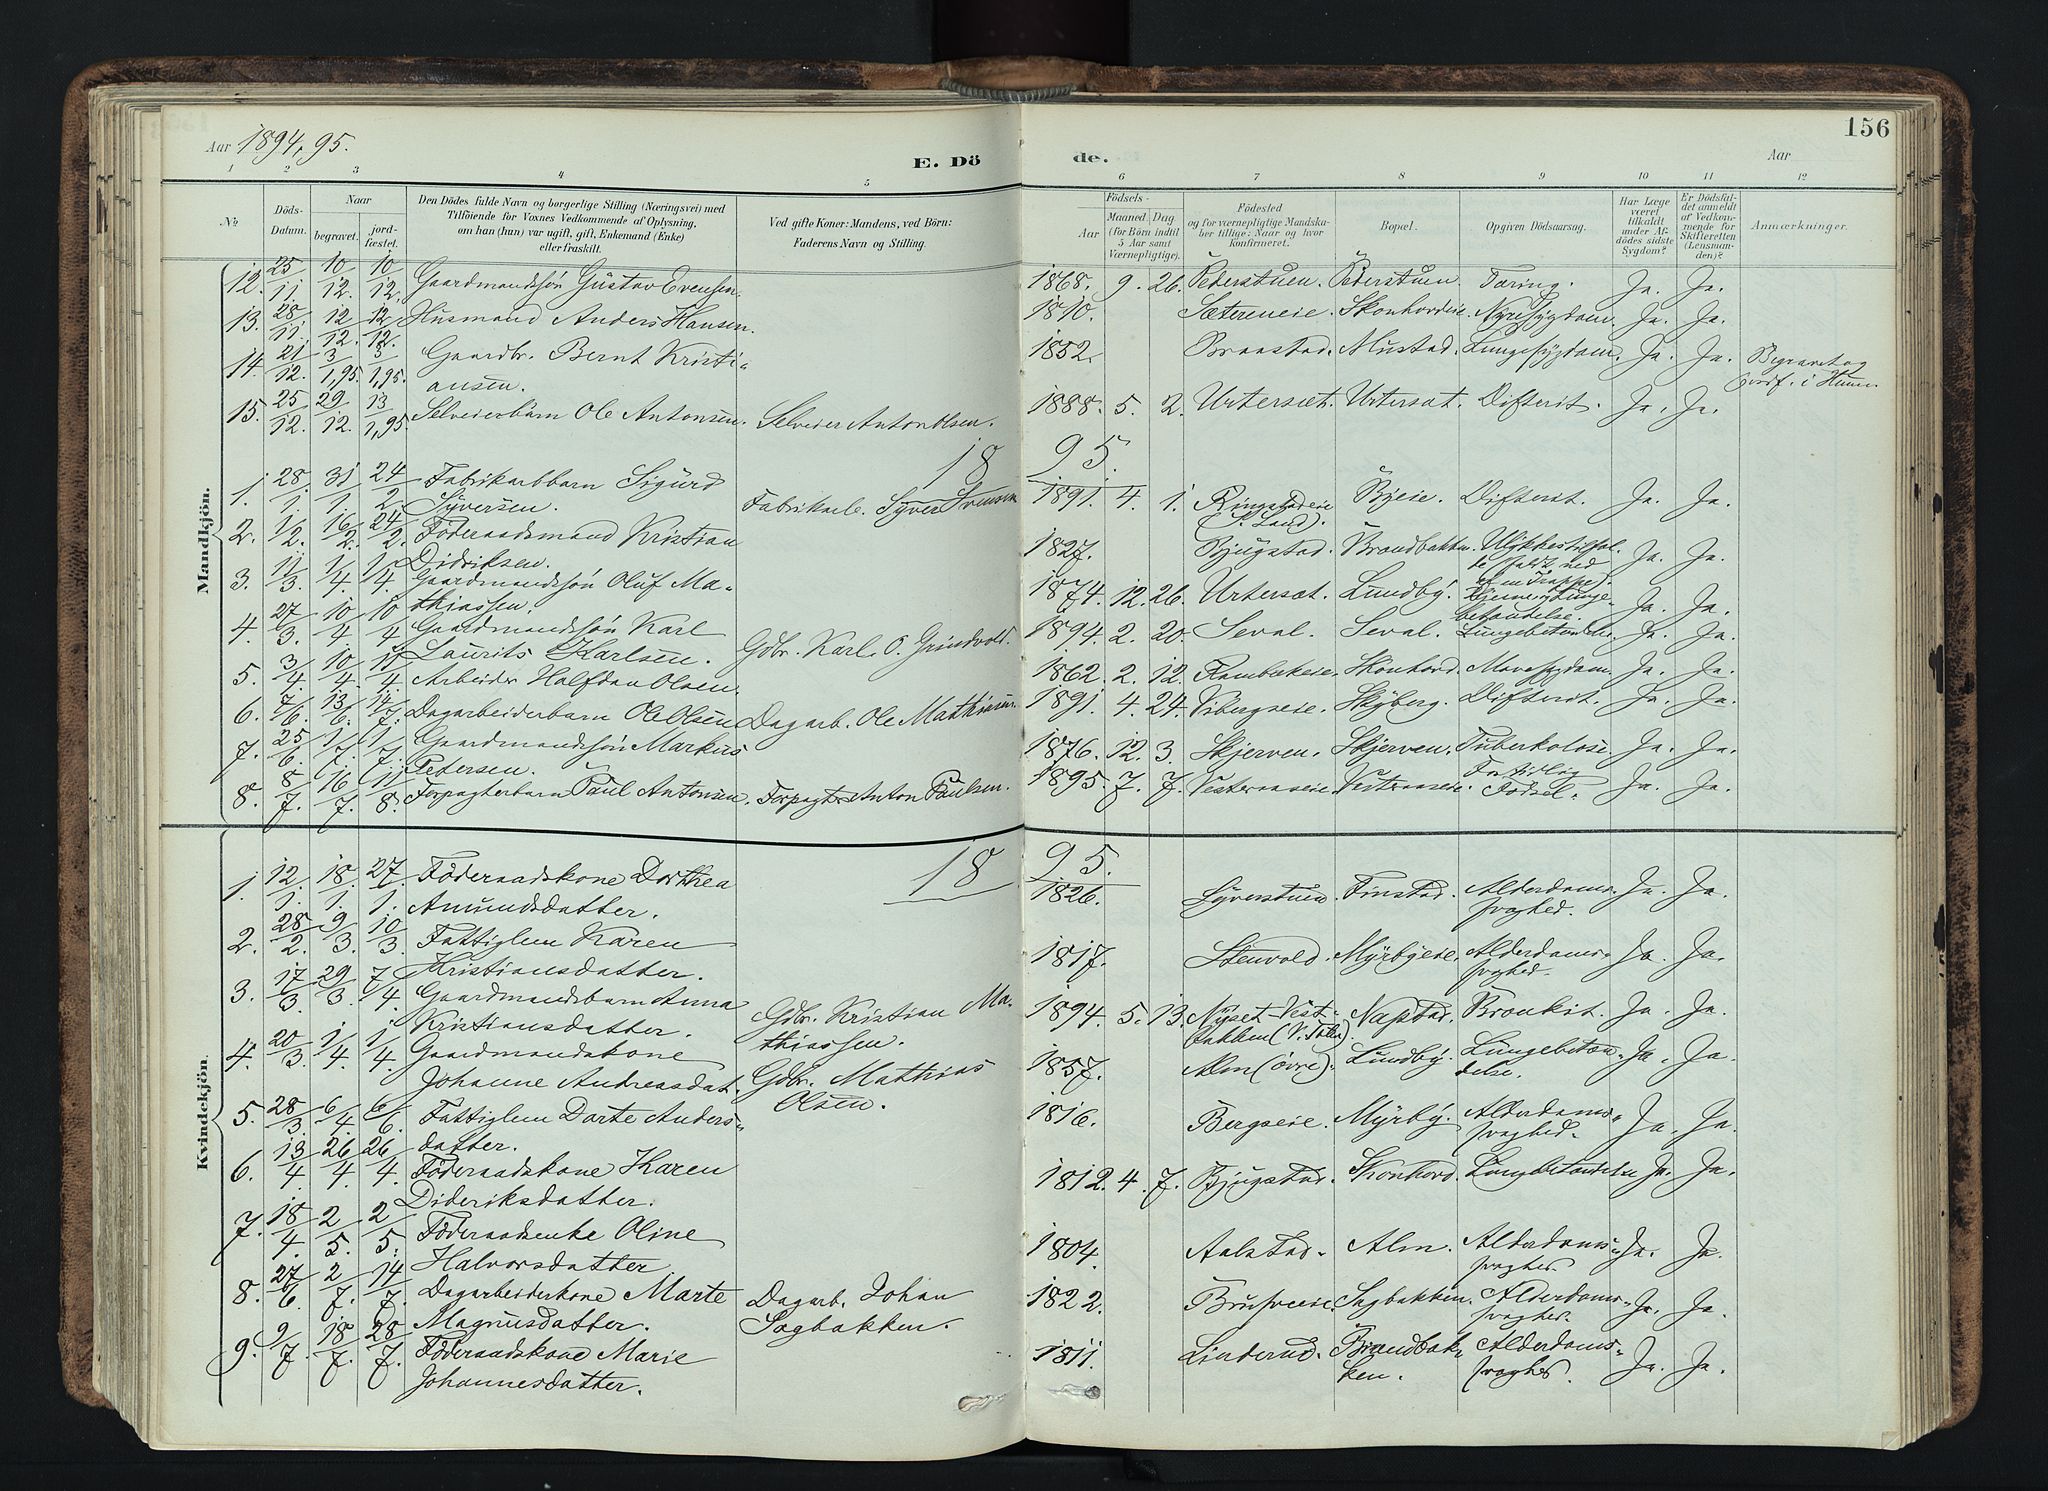 Aar 1894, 95.
E. Dö
de.
Aar
156
1 2 3 4 5 6 7 8 9 10 11 12
No.
Döds-
Datum.
Naar
begravet.
jord-
fæstet.
Den Dödes fulde Navn og borgerlige Stilling (Næringsvei) med
Tilföiende for Voxnes Vedkommende af Oplysning,
om han (hun) var ugift, gift, Enkemand (Enke)
eller fraskilt.
Ved gifte Koner: Mandens, ved Börn:
Faderens Navn og Stilling.
Födsels-
Aar
Maaned. Dag
(for Börn indtil
5 Aar samt
Værnepligtige).
Födested
og for værnepligtige Mandska-
ber tillige: Naar og hvor
Konfirmeret.
Bopæl.
Opgiven Dödsaarsag.
Har Læge
været
tilkaldt
under Af-
dödes sidste
Sygdom?
Er Dödsfal-
det anmeldt
af Vedkom-
mende for
Skifteretten
(Lensman-
den)?
Anmærkninger.
Mandkjön.
12. 25/11. 10/12. 10/12. Gaardmandssön Gustav Evensen. 1868. 9. 26. Pederstuen. Pederstuen. Tæring. Ja. Ja.
13. 28/11. 12/12. 12/12. Husmand Anders Hansen. 1840. Sætereneie. Skonhovdeie. Nyresygdom. Ja. Ja.
14. 21/12. 3/1,95. 3/1,95. Gaardbr. Bernt Kristi- 1852. Braastad. Mustad. Lungesygdom. Ja. Ja. Begravet og
ansen. i Hunn.
15. 25/12. 29/12. 13/1,95. Selveierbarn Ole Antonsen. Selveier Anton Olsen. 1888. 5. 2. Urtersæt. Urtersæt. Difterit. Ja. Ja.
18 95.
1. 28/1. 31/1. 24/2 Fabrikarbbarn Sigurd
Syversen. Fabrikarb. Syver Svensen 1891. 4. 1. Ringstadeie Byeie. Difterit. Ja. Ja.
(S. Land).
2. 1/2. 16/2. 24/2. Föderaadsmand Kristian
Didriksen. 1827. Bjugstad. Brandbakken. Ulykkestilfæl-
de (faldt ned
af en Trappe). Ja. Ja.
3. 11/3. 1/4. 1/4. Gaardmandssön Oluf Ma-
thiassen. 1874. 12. 26. Urtersæt. Lundby. Hjerne og Lunge-
betændelse. Ja. Ja.
4. 27/3. 10/4 10/4 Gaardmandssön Karl
Laurits Karlsen. Gdbr. Karl. O. Grindvold. 1894. 2. 20. Seval. Seval. Lungebetændelse. Ja. Ja.
5. 3/4. 10/4. 10/4 Arbeider Halfdan Olsen. 1862. 2. 12. Skonhovd. Mavesygdom. Ja. Ja.
6. 7/6. 13/6. 14/7. Dagarbeiderbarn Ole Olsen Dagarb. Ole Mathiesen. 1891. 4. 24. Vibergseie. Skyberg. Difterit. Ja. Ja.
7. 25/6. 1/7. 1/7. Gaardmandssön Markus
Petersen. 1876. 12. 3. Skjerven. Skjerven. Tuberkolose. Ja. Ja.
8. 8/7. 16/7. 11/8. Forpagterbarn Paul Antonsen. Forpagter Anton Paulsen. 1895. 7. 7. Vesteraaseie. Vestraaseie. For tidlig
Födsel. Ja. Ja.
Kvindekjön.
18 95.
1. 12/1. 18/1. 27/1. Föderaadskone Dorthea
Amundsdatter. 1826. Syverstuen. Finstad. Alderdoms-
svaghed. Ja. Ja.
2. 28/2. 9/3. 10/3. Fattiglem Karen
Kristiansdatter. 1817. Stenvold. Myrbyeie. Alderdoms-
svaghed. Ja. Ja.
3. 17/3. 29/3. 7/4. Gaardmandsbarn Anna
Kristiansdatter. Gdbr. Kristian Ma-
thiassen. 1894. 5. 13. Nyset Vest-
bakken (V. Toten). Napstad. Bronkit. Ja. Ja.
4. 20/3. 1/4. 1/4. Gaardmandskone
Johanne Andreasdat. Gdbr. Mathias
Olsen. 1857. Alm (övre). Lundby. Lungebetæn-
delse. Ja. Ja.
5. 28/3. 6/4. 6/6. Fattiglem Dorte Anders-
datter. 1816. Bergseie. Myrby. Alderdoms-
svaghed. Ja. Ja.
6. 13/4. 26/4. 26/4. Föderaadskone Karen
Dideriksdatter. 1812. 4. 7. Bjugstad. Skonhovd. Lungebetændelse Ja. Ja.
7. 18/4. 2/5. 2/5. Föderaadsenke Oline
Halvorsdatter. 1804. Aalstad. Alm. Alderdoms-
svaghed Ja. Ja.
8. 27/6. 2/7. 14/7. Dagarbeiderkone Marte
Magnusdatter. Dagarb. Johan
Sagbakken. 1822. Brusveeie. Sagbakken. Alderdoms-
svaghed. Ja. Ja.
9. 9/7. 18/7. 28/7. Föderaadskone Marie
Johannesdatter. 1811. Linderud. Brandbak-
ken. Alderdoms-
svaghed. Ja. Ja.